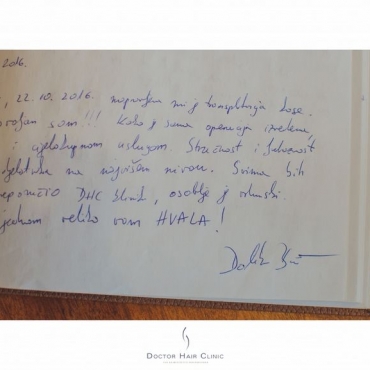 2016.
, 22. 10. 2016. napravljena mi je transplantacija kose.
sam!!! Kako je sama operacija izvedena,
i cjelokupnom uslugom. Stručnost i ljubaznost
na najvišem nivou. Svima bih
DHC kliniku, osoblje je vrhunski.
jednom veliko vam HVALA!
DOCTOR HAIR CLINIC